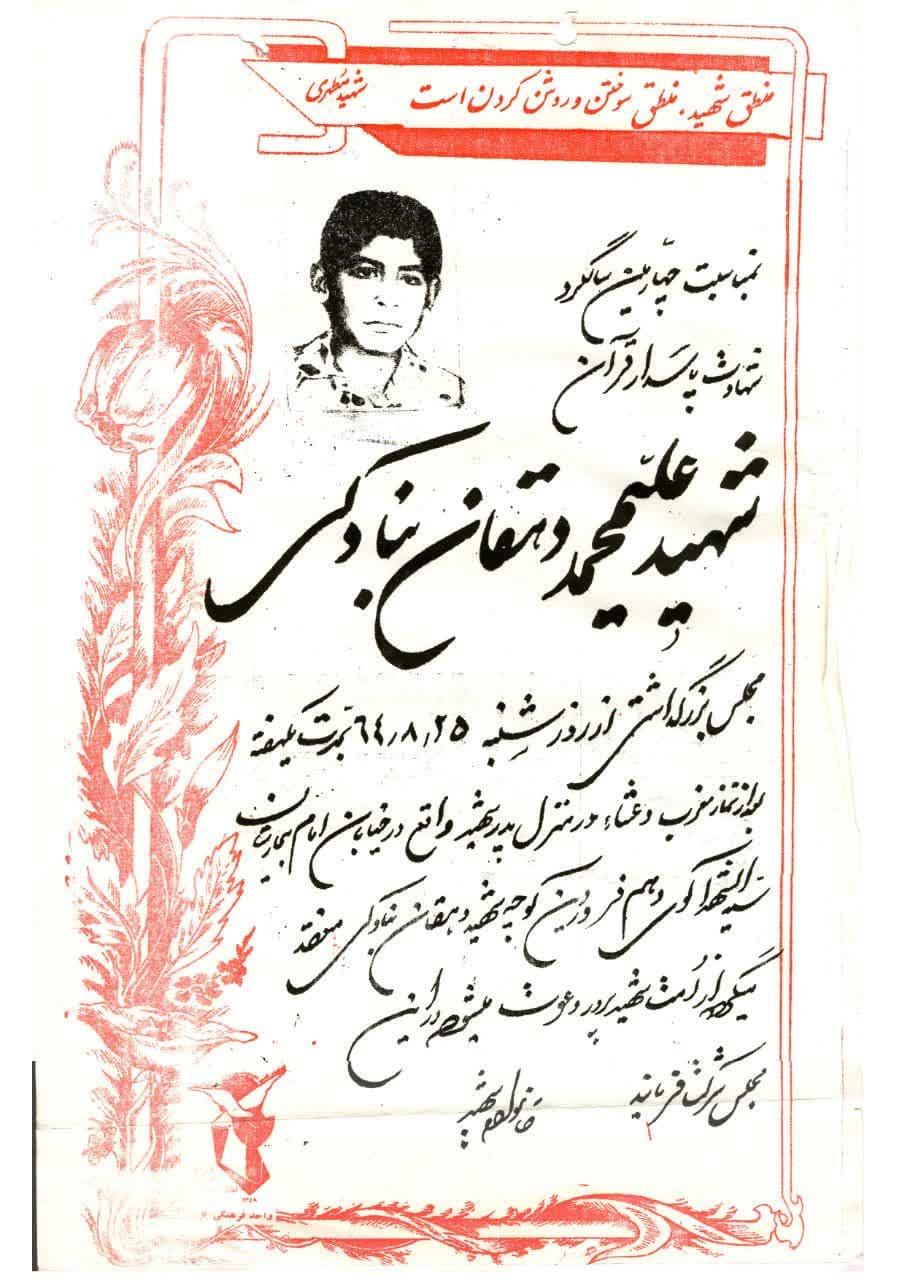 منطق شهید، منطق سوختن و روشن کردن است
شهید مطهری
بمناسبت چهارمین سالگرد
شهادت پاسدار قرآن
شهید علیمحمد دهقان بنادکی
مجلس بزرگداشتی از روز شنبه ۶۴٫۸٫۲۵ بمدت یکهفته
بعد از نماز مغرب و عشاء در منزل پدر شهید واقع در خیابان امام بیمارستان
سیدالشهدا کوی دهم فروردین کوچه شهید دهقان بنادکی منعقد
میگردد از امت شهید پرور دعوت میشود در این
مجلس شرکت فرمایند
خانواده شهید
۱۳۵۹
واحد فرهنگی